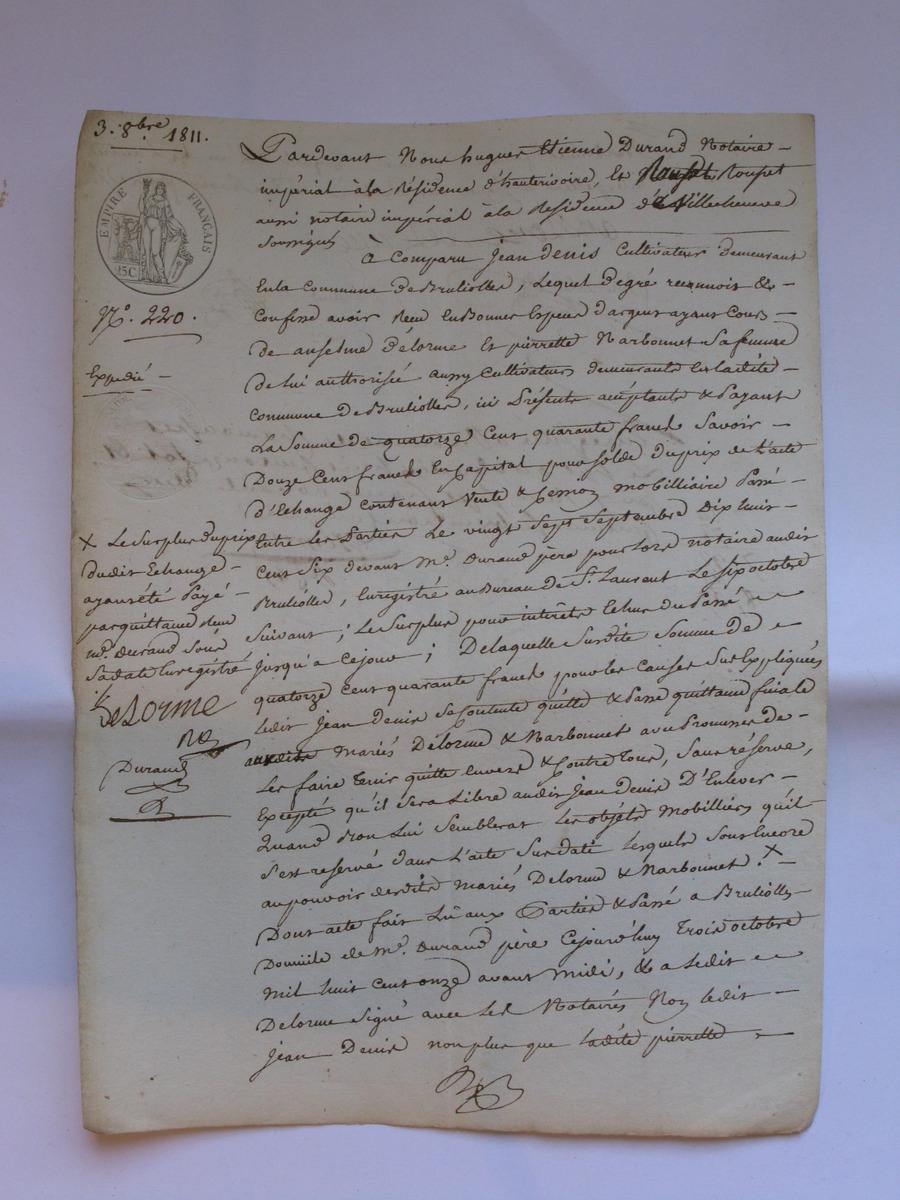 3. 8bre 1811.
EMPIRE FRANÇAIS
25 C
N.o 220.
Expedié
Pardevant Nous hugues Etienne Durand Notaire
impérial à la Résidence d'hauterivoire, Et Roupet
aussi notaire impérial à la Residence de Villecheneve
Soussignés
à Comparu jean denis Cultivateur demeurant
En la Commune de Bruliolles, Lequel de gré reconnoit &
Confesse avoir Reçu En Bonnes Especes d'argent ayant Cours
de anselme delorme Et pierrette Narbonnet Sa femme
de lui authorisée aussy Cultivateurs demeurants En ladite
Commune de Bruliolles, ici Présents acceptants & Payant
La Somme de quatorze Cent quarante francs Savoir
Douze Cent francs En Capital pour Solde du prix de L'acte
d'Echange Contenant Vente & Cession mobilliaire Passé
Entre les Parties Le vingt Sept Septembre Dix huit
Cent Six devant Me. Durand père pour Lors notaire audit
Bruliolles, Enregistré au Bureau de St. Laurent Le Six octobre
Suivant; Le Surplus pour intérêts Echus du Passé
jusqu'a Ce jour; De laquelle Susdite Somme de
quatorze Cent quarante francs pour les Causes Sus Expliquées
Ledit jean denis Se Contente quitte & Passe quittance finale
auxdits mariés Delorme & Narbonnet avec Promesse de
Les faire Tenir quitte Envers & Contre Tous, Sans réserve,
Excepté qu'il Sera Libre audit jean denis D'Enlever
Quand Bon Lui Semblerat Les objets Mobilliers qu'il
S'est reservé dans L'acte Sus daté Lesquels Sont Encore
au pouvoir desdits mariés Delorme & Narbonnet. X
Dont acte fait Lu aux Parties & Passé a Bruliolles
Domicile de Me. Durand père Cejourd'huy Trois octobre
mil huit Cent onze avant midi, & a Ledit
Delorme Signé avec Les Notaires Non Ledit
jean Denis non plus que ladite pierrette
X Le Surplus du prix
dudit Echange
ayant été Payé
par quittance Reçu
Me. Durand Sous
Sa date Enregistré
Delorme
Durand